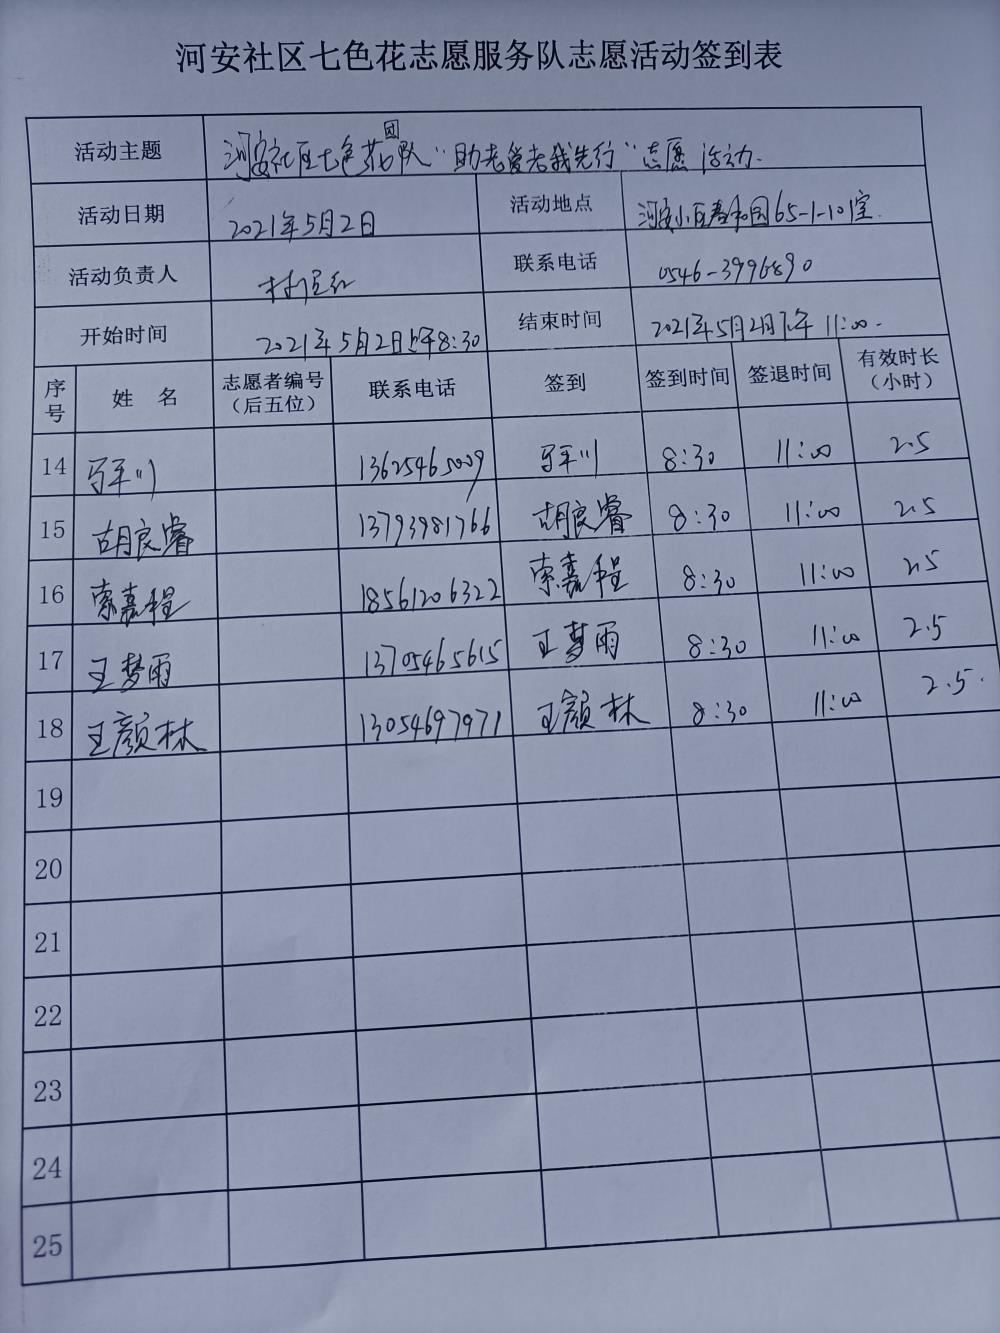 河安社区七色花志愿服务队志愿活动签到表
活动主题 河安社区七色花团队“助老爱老我先行”志愿活动.
活动日期 2021年5月2日 活动地点 河安小区春和园65-1-101室.
活动负责人 联系电话 0546-3996890
开始时间 2021年5月2日上午8:30 结束时间 2021年5月2日下午11:00.
序号 姓 名 志愿者编号（后五位） 联系电话 签到 签到时间 签退时间 有效时长（小时）
14 马军川 13625465009 马军川 8:30 11:00 2.5
15 胡良睿 13793981766 胡良睿 8:30 11:00 2.5
16 索嘉程 18561206322 索嘉程 8:30 11:00 2.5
17 王梦雨 13705465615 王梦雨 8:30 11:00 2.5
18 王颜林 13054697971 王颜林 8:30 11:00 2.5.
19
20
21
22
23
24
25